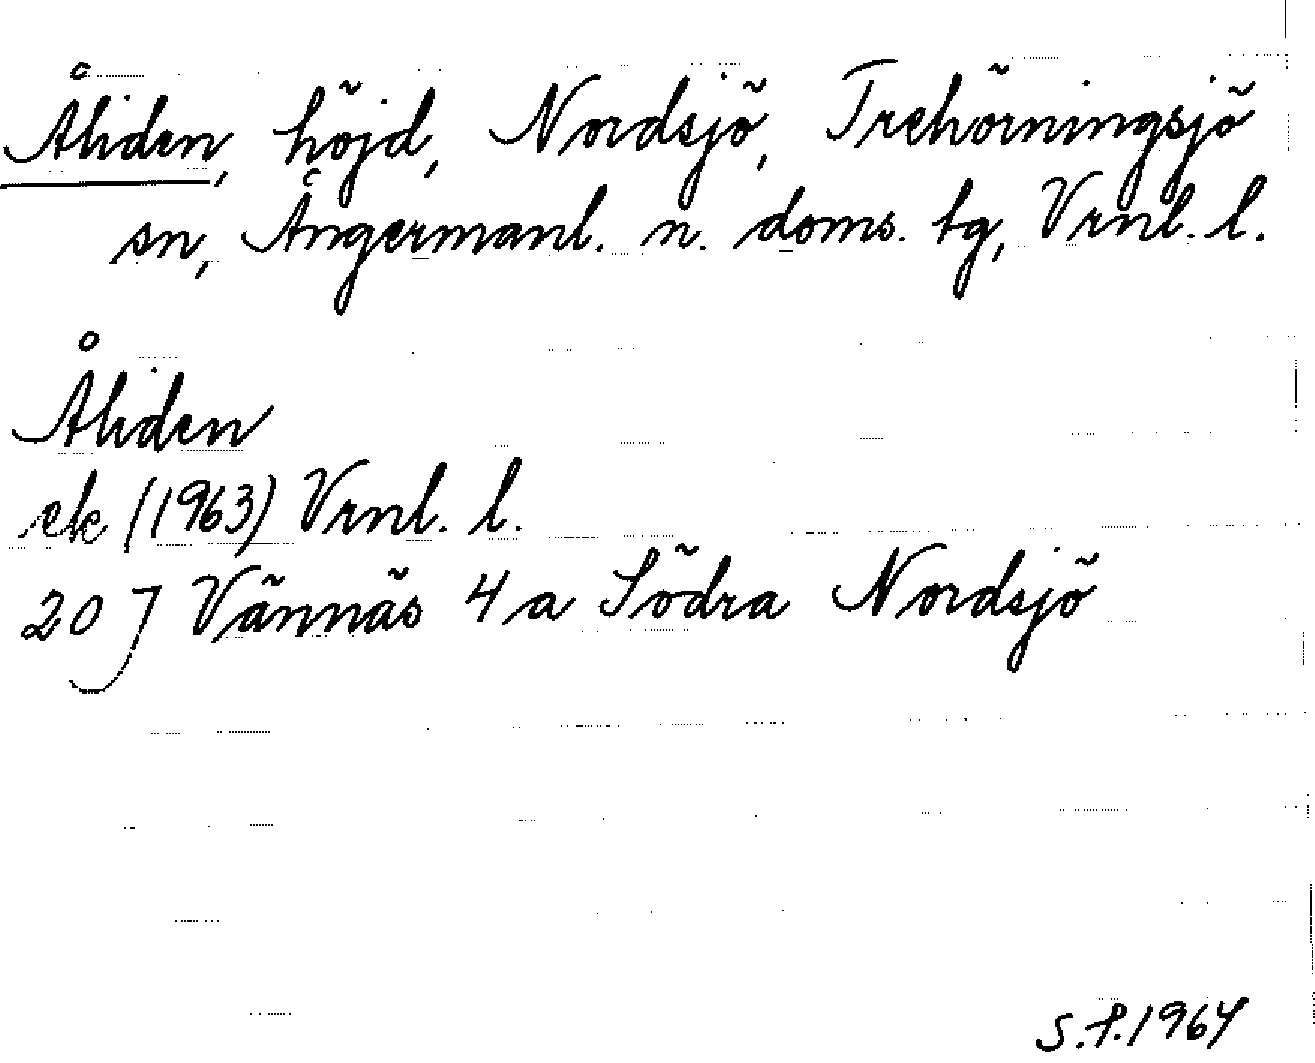 Åliden, höjd, Nordsjö, Trehörningsjö
sn, Ångermanl. n. doms. tg, Vrnl. l.
Åliden
ek (1963) Vrnl. l.
20 J Vännäs 4 a Södra Nordsjö
S.F. 1964